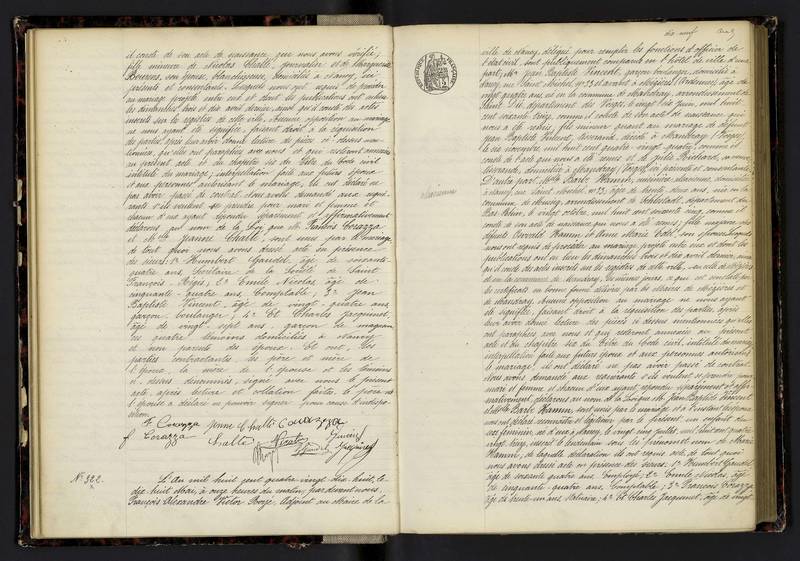 dix neuf
il conste de son acte de naissance que nous avons vérifié;
fils mineur de Nicolas Challe, journalier et de Marguerite
son épouse, blanchisseuse, domiciliés à Nancy, ici
présents et consentants. Lesquels nous ont requis de procéder
au mariage projeté entre eux et dont les publications ont eu lieu
les dimanches trois et dix avril dernier, ainsi qu'il conste des actes
inscrits sur les registres de cette ville. Aucune opposition au mariage
ne nous ayant été signifiée, faisant droit à la réquisition
des parties, après leur avoir donné lecture des pièces ci-dessus men-
tionnées, qu'elles ont paraphées avec nous et qui resteront annexées
au présent acte et du chapitre six du titre du code civil
intitulé du mariage; interpellation faite aux futurs époux
et aux personnes autorisant le mariage, ils ont déclaré ne
pas avoir passé de contrat. Nous avons demandé aux requé-
rants s'ils veulent se prendre pour mari et femme et
chacun d'eux ayant répondu séparément et affirmativement
déclarons qu'au nom de la Loi que M. Corazza
et Mlle Jeanne Challe, sont unis par le mariage
de tout quoi nous avons dressé acte en présence
des sieurs: 1° Humbert Gaudel, âgé de soixante-
quatre ans, de la Société de Saint
François-Régis; 2° Emile Nicolas, âgé de
cinquante-quatre ans, Comptable; 3° Jean
Baptiste Vincent, âgé de vingt-quatre ans,
garçon boulanger; 4° et Charles Jacquinet,
âgé de vingt-sept ans, garçon de magasin,
les quatre témoins domiciliés à Nancy
et non parents des époux. Et ont, les
parties contractantes, les père et mère de
l'épouse, la mère de l'époux et les témoins
ci-dessus dénommés, signé avec nous le présent
acte après lecture et collation faites, le père de
l'épouse a déclaré ne pouvoir signer pour cause d'indispo-
sition.
Corazza Jeanne Challe Corazza
Corazza Challe Nicolas Vincent
Gaudel Jacquinet
N° 322.
L'an mil huit cent quatre vingt dix-huit, le
dix huit Mai, à onze heures du matin, par devant nous,
François Alexandre Victor adjoint au Maire de la
ville de Nancy, délégué pour remplir les fonctions d'officier de
l'état civil, sont publiquement comparus en l'hôtel de ville d'une
part, M. Jean Baptiste Vincent, garçon boulanger, domicilié à
Nancy, rue Saint Michel, N° 33, et avant à Mézières (Ardennes), âgé de
vingt quatre ans, né en la commune de Mandray, arrondissement de
Saint Dié, département des Vosges, le vingt six juin, mil huit
cent soixante treize, comme il conste de son acte de naissance qui
nous a été remis, fils majeur quant au mariage de défunt
Jean Baptiste Vincent, tisserand, décédé à Mandray (Vosges),
le six novembre, mil huit cent quatre vingt quatre, comme il
conste de l'acte qui nous a été remis et de Julie Richard, sa veuve,
tisserande, domiciliée à Mandray (Vosges), ici présente et consentante;
D'autre part, Mlle Barbe Hamm, cuisinière, domiciliée
à Nancy, rue Saint Michel, N° 33, âgée de trente deux ans, née en la
commune de arrondissement de Schlestadt, département du
Bas-Rhin, le vingt octobre, mil huit cent soixante cinq, comme il
conste de son acte de naissance qui nous a été remis; fille majeure des
défunts Oswald Hamm et Anne Marie son épouse. Lesquels
nous ont requis de procéder au mariage projeté entre eux et dont les
publications ont eu lieu les dimanches trois et dix avril dernier, ainsi
qu'il conste des actes inscrits sur les registres de cette ville, en celle de Mézières
et en la commune de Mandray les mêmes jours, ce qui est constaté par
les certificats en bonne forme délivrés par les Maires de Mézières et
de Mandray. Aucune opposition au mariage ne nous ayant
été signifiée, faisant droit à la réquisition des parties, après
leur avoir donné lecture des pièces ci-dessus mentionnées qu'elles
ont paraphées avec nous et qui resteront annexées au présent
acte et du chapitre six du titre du code civil, intitulé du mariage,
interpellation faite aux futurs époux et aux personnes autorisant
le mariage, ils ont déclaré ne pas avoir passé de contrat.
Nous avons demandé aux requérants s'ils veulent se prendre pour
mari et femme et chacun d'eux ayant répondu séparément et affir-
mativement, déclarons au nom de la Loi que M. Jean Baptiste Vincent
et Mlle Barbe Hamm, sont unis par le mariage et à l'instant les époux
nous ont déclaré reconnaître et légitimer par le présent un enfant du
sexe féminin né d'eux à Nancy, le vingt cinq juillet, mil huit cent quatre
vingt treize, inscrit le lendemain sous les prénoms et nom de Marie
Hamm, de laquelle déclaration ils ont requis acte, de tout quoi
nous avons dressé acte en présence des sieurs: 1° Humbert Gaudel,
âgé de soixante quatre ans, Employé; 2° Emile Nicolas, âgé
de cinquante-quatre ans, Comptable; 3° François Corazza
âgé de trente-un ans, 4° et Charles Jacquinet, âgé de vingt